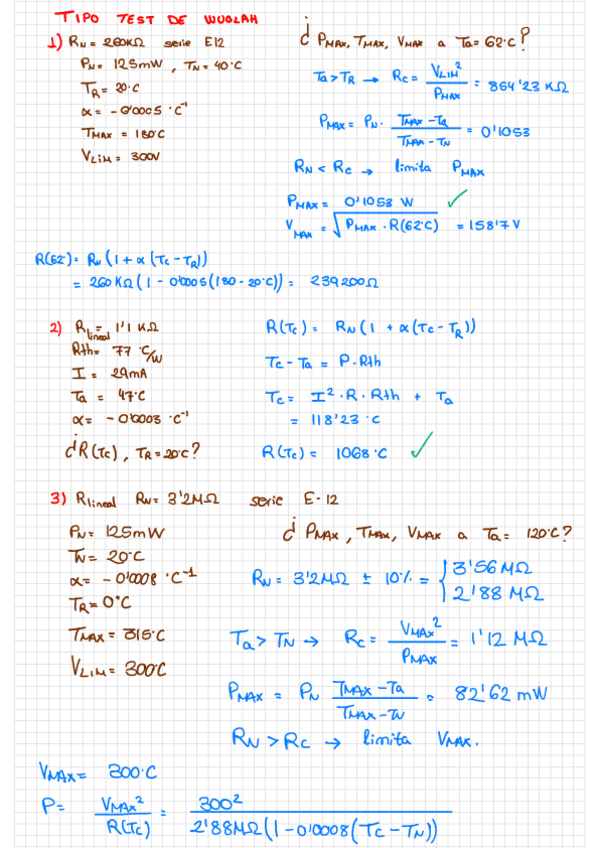 TIPO TEST DE WUOLAH
1) RN = 260KΩ serie E12
¿ PMAX, TMAX, VMAX a Ta = 62°C?
PN = 125mW, TN = 40°C
TR = 20°C
α = -0'0005 °C⁻¹
TMAX = 180°C
VLIM = 300V
Ta > TR → RC = VLIM² / PMAX = 854'23 KΩ
PMAX = PN · TMAX - Ta / TMAX - TN = 0'1053
RN < RC → limita PMAX
PMAX = 0'1053 W ✓
VMAX = √PMAX · R(62°C) = 158'7 V
R(62°) = RN (1 + α (TC - TR))
= 260KΩ (1 - 0'0005 (180 - 20°C)) = 239200Ω
2) Rlineal = 1'1 KΩ
Rth = 77 °C/W
I = 29mA
Ta = 47°C
α = -0'0003 °C⁻¹
¿R(TC), TR = 20°C?
R(TC) = RN (1 + α (TC - TR))
TC - Ta = P · Rth
TC = I² · R · Rth + Ta
= 118'23 °C
R(TC) = 1068°C ✓
3) Rlineal RN = 3'2MΩ serie E-12
PN = 125mW
¿ PMAX, TMAX, VMAX a Ta = 120°C?
TN = 20°C
α = -0'0008 °C⁻¹
TR = 0°C
TMAX = 315°C
VLIM = 300°C
RN = 3'2MΩ ± 10% = { 3'56 MΩ
2'88 MΩ
Ta > TN → RC = VMAX² / PMAX = 1'12 MΩ
PMAX = PN TMAX - Ta / TMAX - TN = 82'62 mW
RN > RC → limita VMAX.
VMAX = 300°C
P = VMAX² / R(TC) = 300² / 2'88MΩ (1 - 0'0008 (TC - TN))